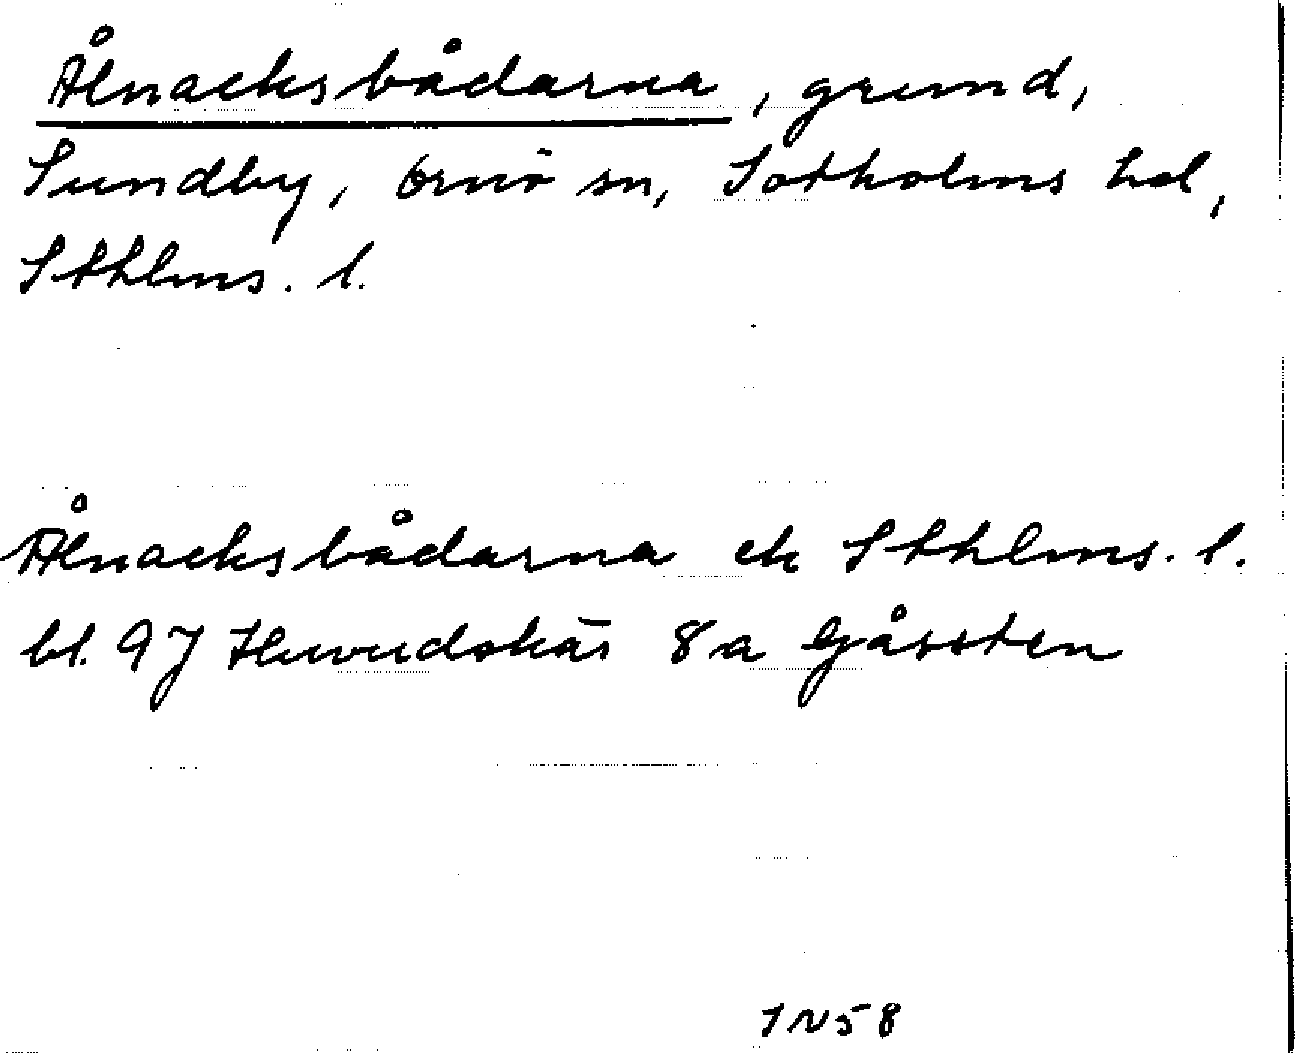 Ålnacksbådarna, grund,
Sundby, Ornö sn, Sotholms hd,
Sthlms. l.
Ålnacksbådarna ek Sthlms. l.
bl. 97 Huvudskär 8a Gåssten
IN58